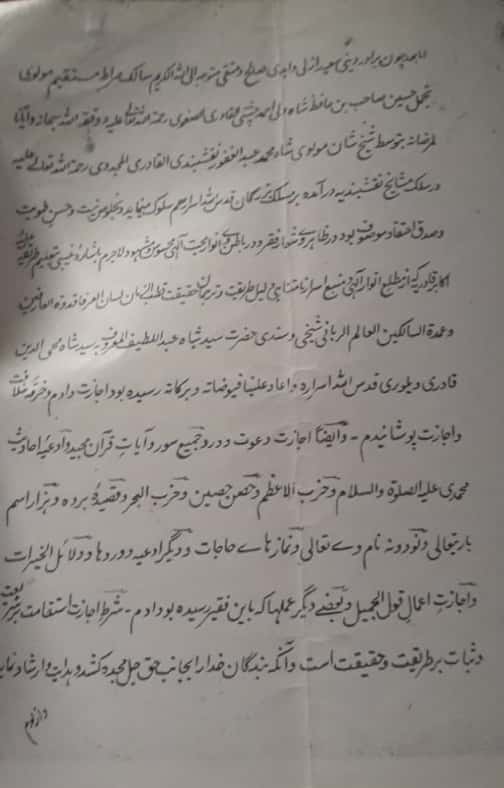 اما بعد چون برادر دینی سعید ازلی و ابدی صالح و متقی متوجه الی الله الکریم سالک صراط مستقیم مولوی شاه
تجمل حسین صاحب بن حافظ شاه والی احمد چشتی القادری الصفوی رحمة الله تعالی علیه وفقه الله سبحانه وایانا
لمرضاته بتوسط شیخ شان مولوی شاه محمد عبد الغفور نقشبندی القادری المجددی رحمة الله تعالی علیه
در سلک مشایخ نقشبندیه در آمده بر مسلک بزرگان قدس الله اسرارهم سلوک مینماید و بخلوص نیت و حسن طویت
و صدق اعتقاد موصوف بود در ظاهر وی شعار فقر و در باطن وی انوار محبت الهی محسوس و مشهود لاجرم باشاره غیبی تعلیم طریقه علیه
اکابر قادریه که از مطلع انوار الهی و منبع اسرار نامتناهی دلیل طریقت و ترجمان حقیقت قطب الزمان لسان العرفا قدوة العارفین
و عمدة السالکین العالم الربانی شیخی و سندی حضرت سید شاه عبد اللطیف المعروف به سید شاه محی الدین
قادری ویلوری قدس الله اسراره واعاد علینا فیوضاته و برکاته رسیده بود اجازت دادم و خرقه خلافت
و اجازت پوشانیدم - و ایضاً اجازت دعوت و ورد جمیع سور و آیات قرآن مجید و ادعیه احادیث
محمدی علیه الصلوة والسلام و حزب الاعظم و حصن حصین و حزب البحر و قصیدۀ برده و هزار اسم
باریتعالی و نود و نه نام وے تعالی و نمازهاے حاجات و دیگر ادعیه و درودها و دلائل الخیرات
و اجازت اعمال قول الجمیل و بعضے دیگر عملها که باین فقیر رسیده بود دادم - شرط اجازت استقامت بر شریعت
و ثبات بر طریقت و حقیقت است و آنکه بندگان خدا را بجانب حق جل مجده کشد و هدایت و ارشاد نماید